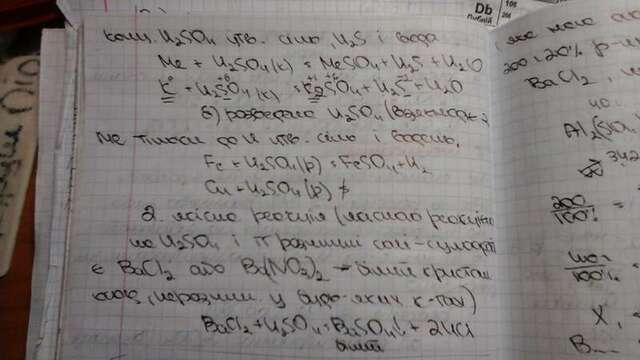 конц. H2SO4 утв. сіль, H2S і вода
Me + H2SO4(к) = MeSO4 + H2S + H2O
K + H2SO4(к) = K2SO4 + H2S + H2O
б) розведена H2SO4 (взаємодіє з
Me тільки до H утв. сіль і водень.
Fe + H2SO4(р) = FeSO4 + H2
Cu + H2SO4(р) ≠
2. якісна реакція (якісною реакцією
на H2SO4 і її розчинні солі-сульфати
є BaCl2 або Ba(NO3)2 - білий кристал
осад, нерозчин. у будь-яких к-тах)
BaCl2 + H2SO4 = BaSO4↓ + 2HCl
білий
Db
105
200 · 20%
BaCl2
Al2(SO4
342
200
100%
=
100%
=
X,
B...